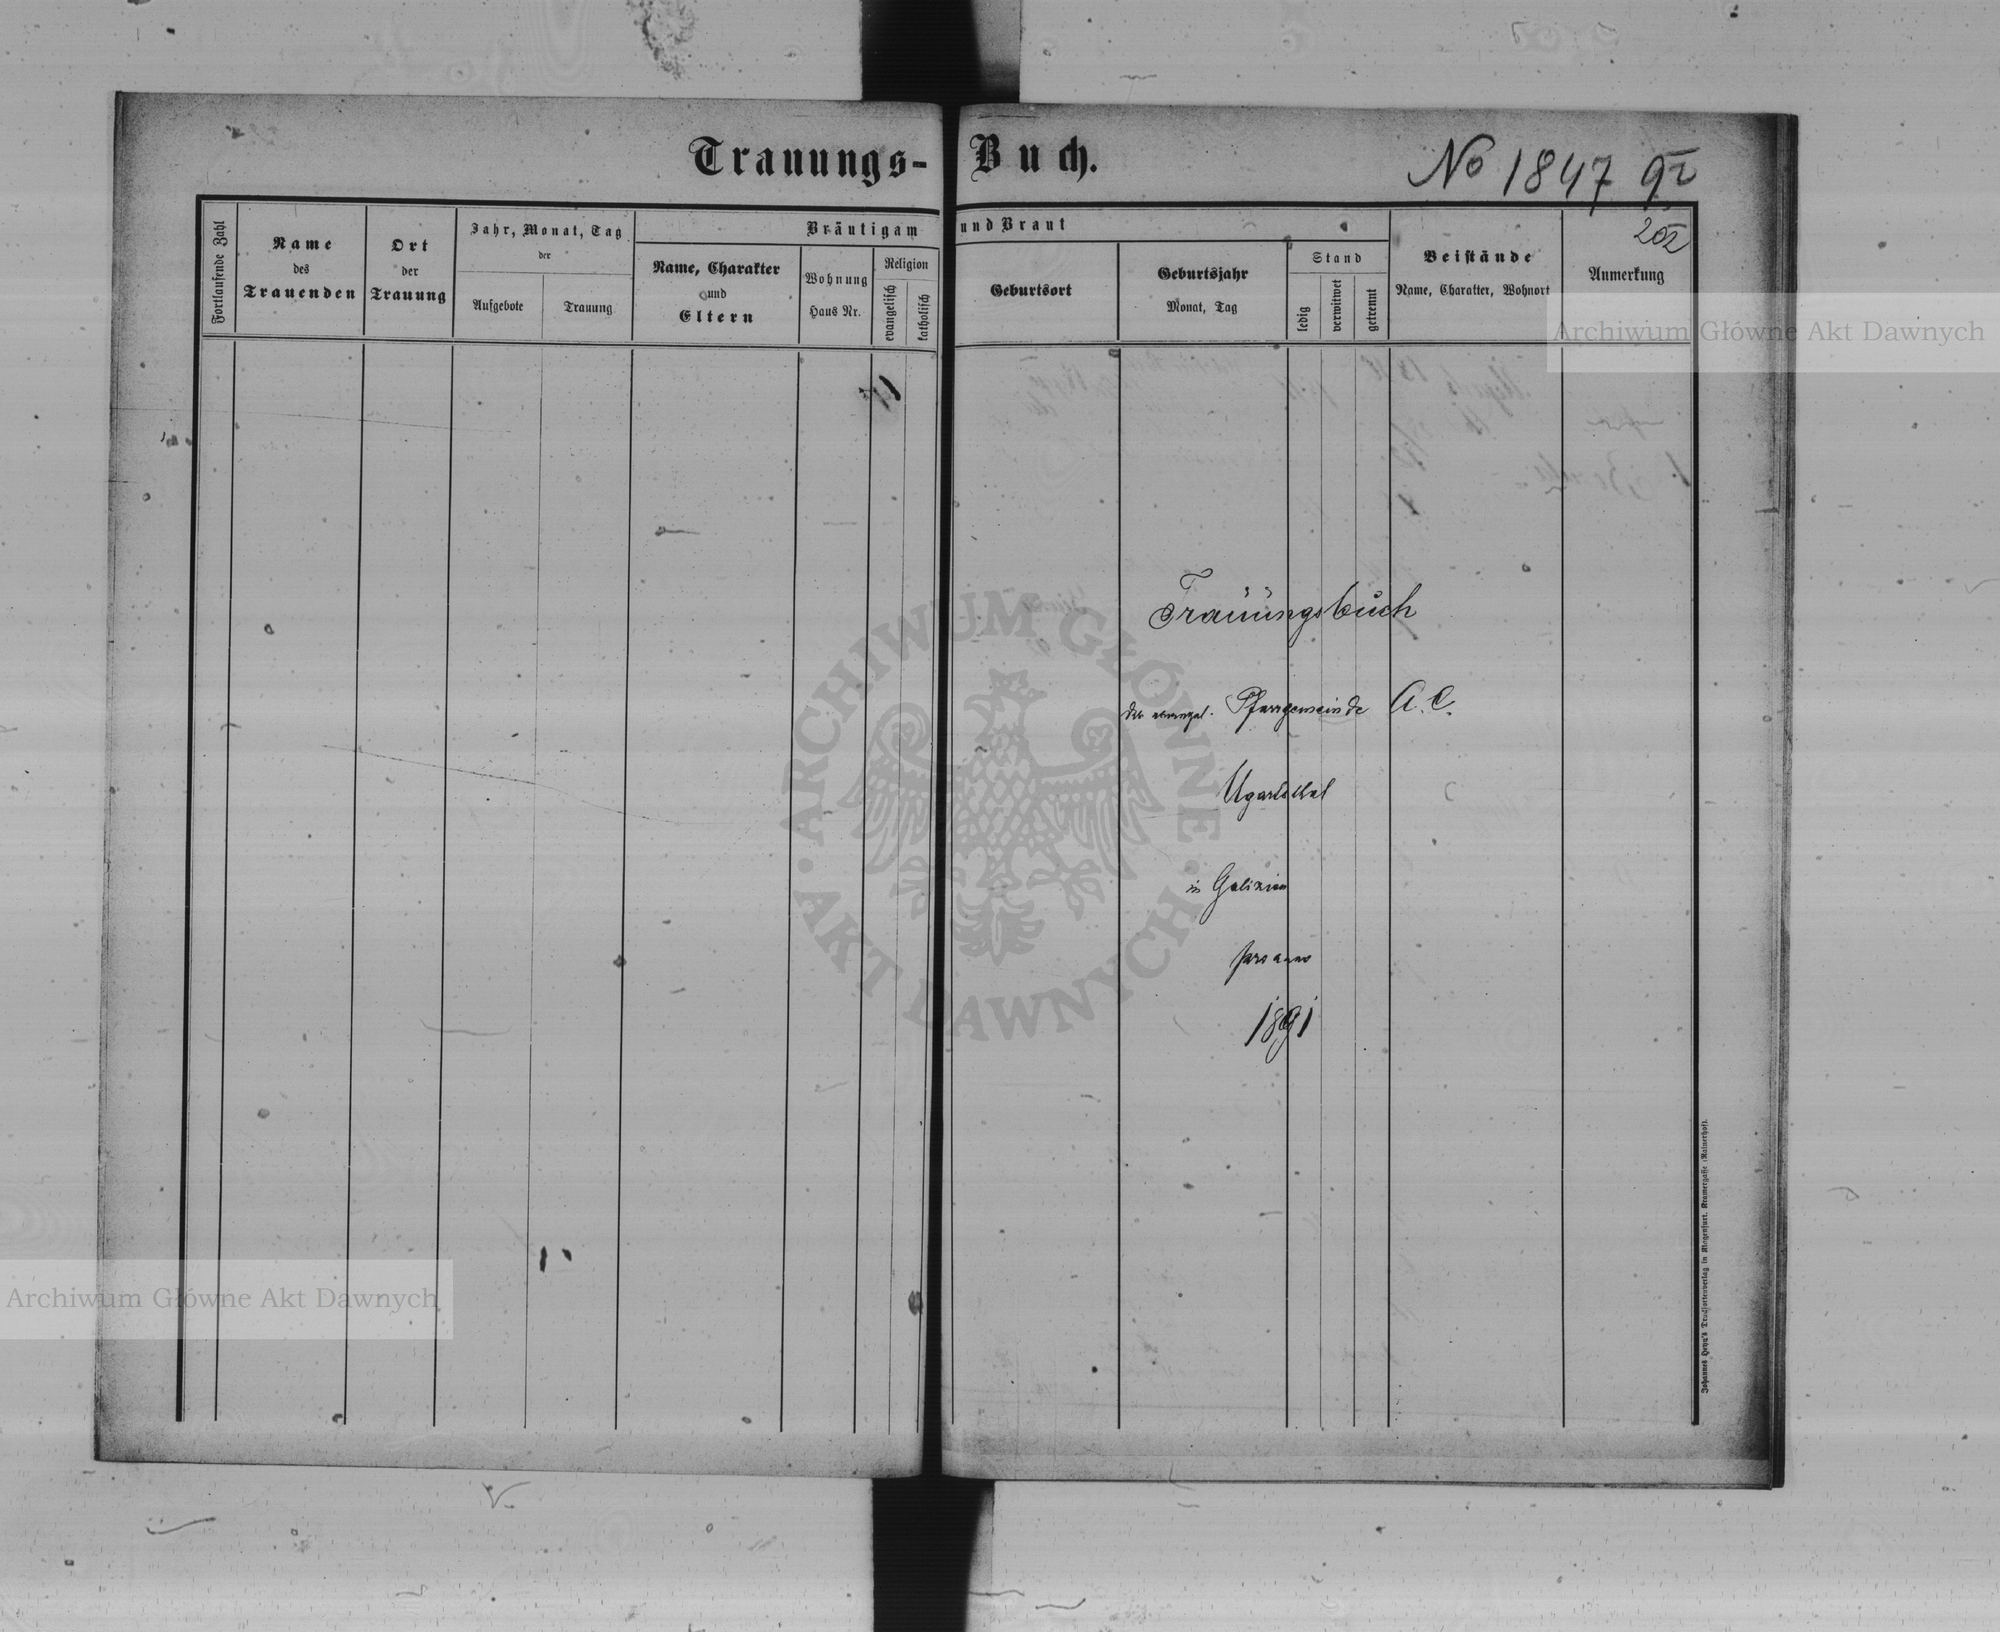 Trauungs-Buch.
No 1847 92
202
Fortlaufende Zahl
Name
des
Trauenden
Ort
der
Trauung
Jahr, Monat, Tag
der
Aufgebote
Trauung
Bräutigam und Braut
Name, Charakter
und
Eltern
Wohnung
Haus Nr.
Religion
evangelisch
katholisch
Geburtsort
Geburtsjahr
Monat, Tag
Stand
ledig
verwitwet
getrennt
Beistände
Name, Charakter, Wohnort
Anmerkung
Archiwum Główne Akt Dawnych
Trauungsbuch
der evangel. Pfarrgemeinde A. C.
Ugartsthal
in Galizien
pro anno
1891
ARCHIWUM GŁÓWNE · AKT DAWNYCH ·
Archiwum Główne Akt Dawnych
Johannes Heyn's Drucksortenverlag in Klagenfurt, Kramergasse (Rainerhof).